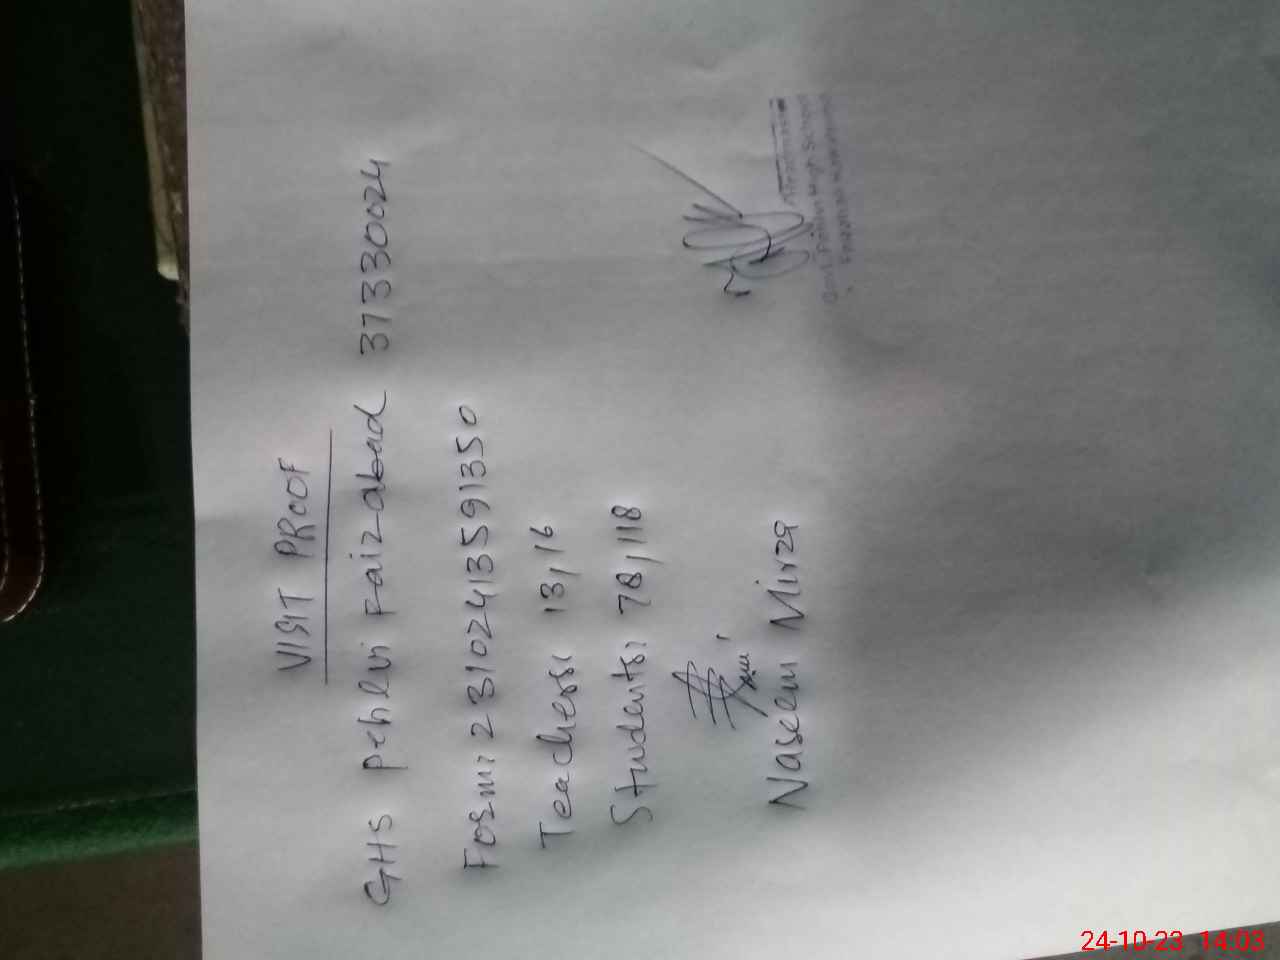 VISIT PROOF
GHS pehlvi Faizabad 37330024
Form: 23102413591350
Teachers: 13,16
Students: 78,118
Naseem Mirza
High School
24-10-23 14:03